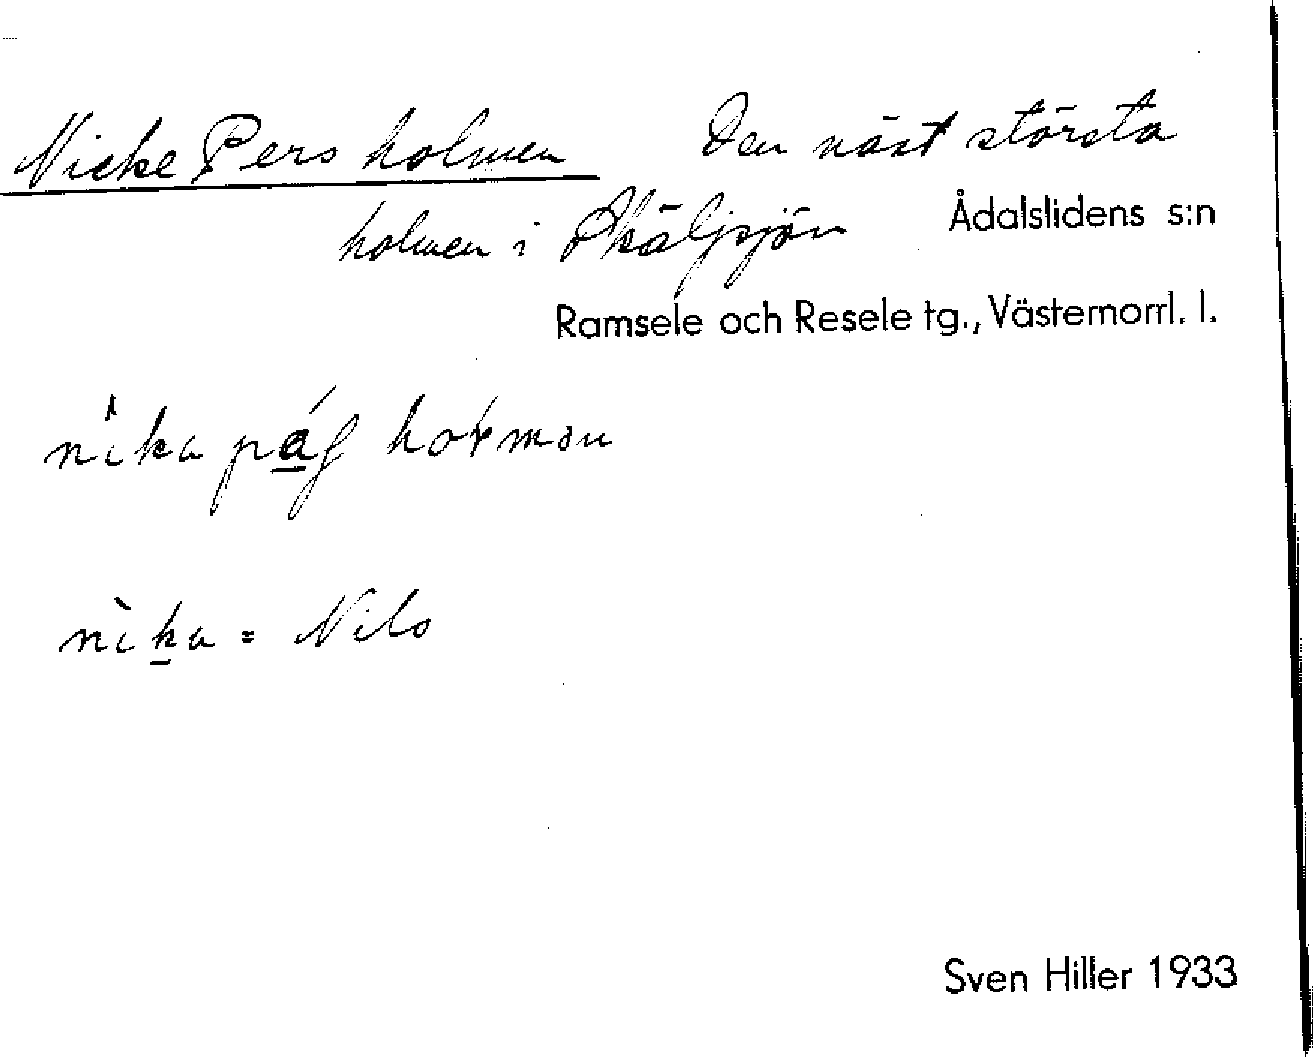 Nicke Pers holmen Den näst största
holmen i Skäljsjön Ådalslidens s:n
Ramsele och Resele tg., Västernorrl. l.
nika
nika = Nils
Sven Hiller 1933